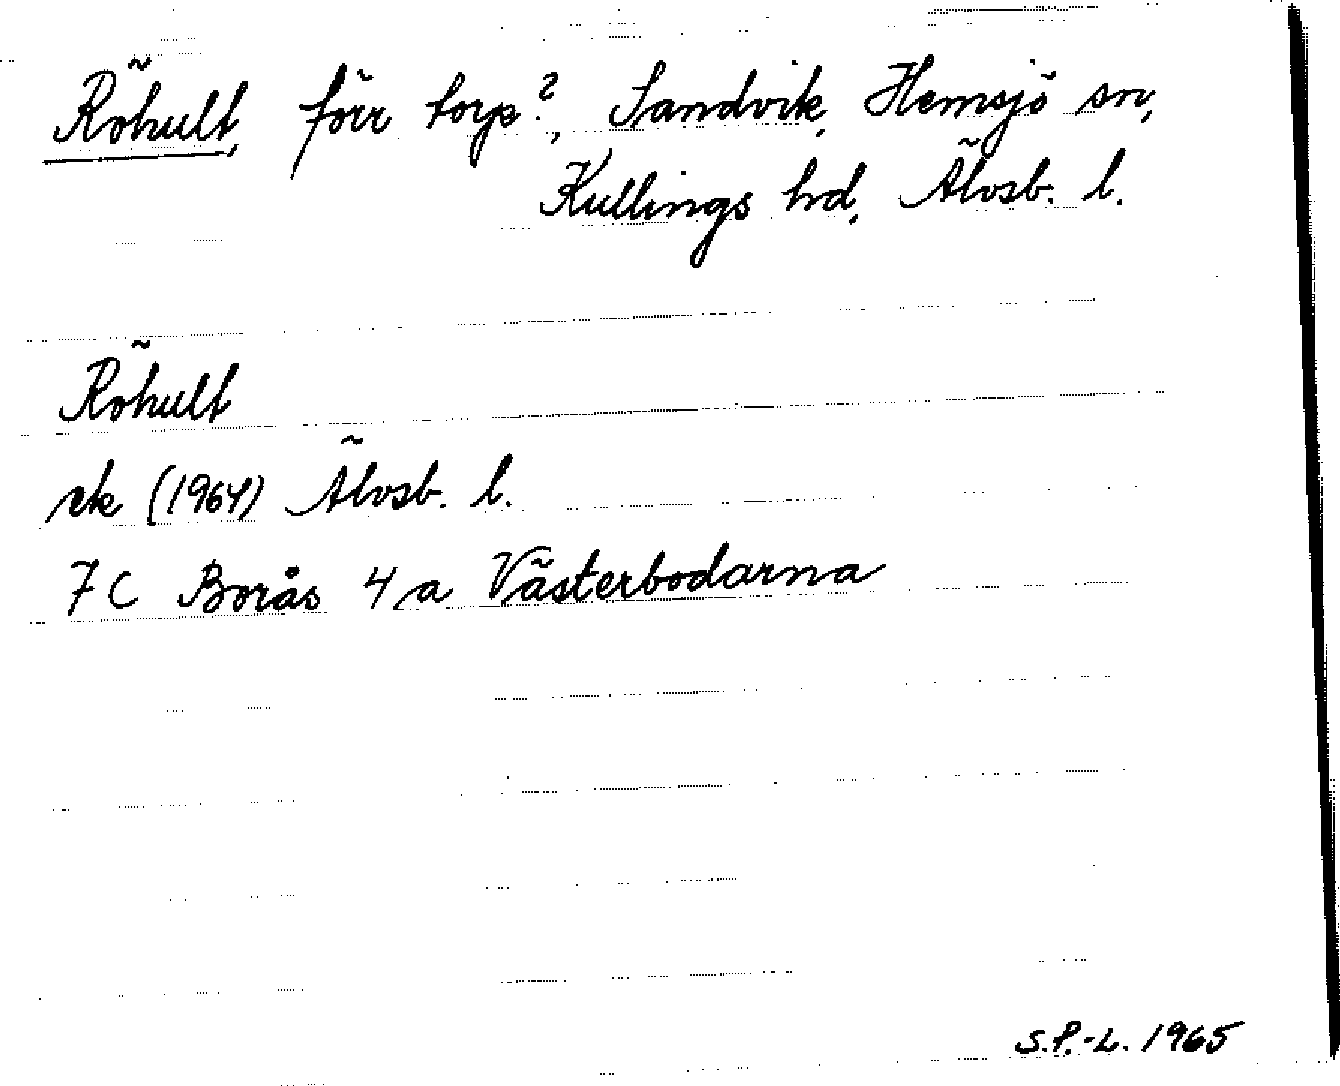 Röhult, förr torp?, Sandvik, Hemsjö sn,
Kullings hd, Älvsb. l.
Röhult
ek (1964) Älvsb. l.
7 C Borås 4 a Västerbodarna
S.P.-L. 1965